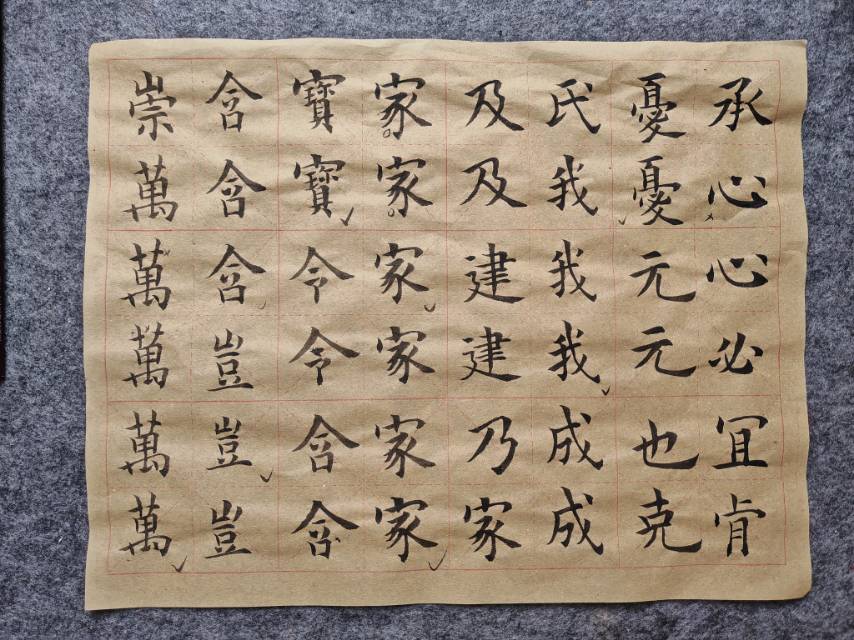 承心心必冝肯
憂憂元元也克
氏我我我成成
及及建建乃家
家家家家家家
寶寶令令含含
含含含豈豈豈
崇萬萬萬萬萬